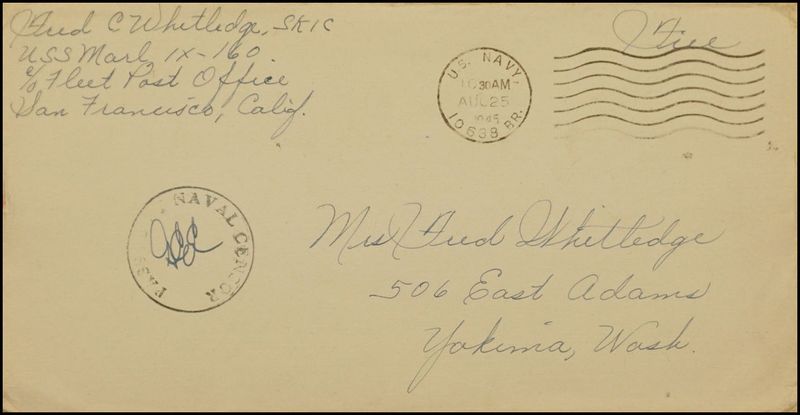 Fred C Whitledge, SK1C
USS Marl IX-160.
c/o Fleet Post Office
San Francisco, Calif.
U.S. NAVY
10 30 AM
AUG 25
1945
10638 BR.
Free
PASSED
NAVAL CENSOR
Mrs Fred Whitledge
506 East Adams
Yakima, Wash.